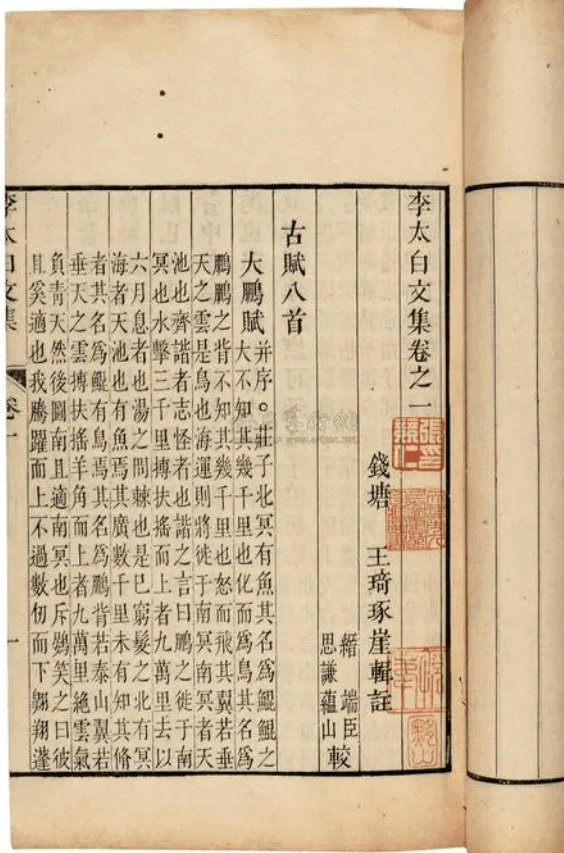 李太白文集卷之一
錢塘 王琦琢崖輯註
縉 端臣
思謙蘊山
較
古賦八首
大鵬賦
并序。莊子北冥有魚其名爲鯤鯤之
大不知其幾千里也化而爲鳥其名爲
鵬鵬之背不知其幾千里也怒而飛其翼若垂
天之雲是鳥也海運則將徙于南冥南冥者天
池也齊諧者志怪者也諧之言曰鵬之徙于南
冥也水擊三千里摶扶搖而上者九萬里去以
六月息者也湯之問棘也是已窮髮之北有冥
海者天池也有魚焉其廣數千里未有知其脩
者其名爲鯤有鳥焉其名爲鵬背若泰山翼若
垂天之雲摶扶搖羊角而上者九萬里絕雲氣
負青天然後圖南且適南冥也斥鷃笑之曰彼
且奚適也我騰躍而上不過數仞而下翺翔蓬
李太白文集 卷一 一